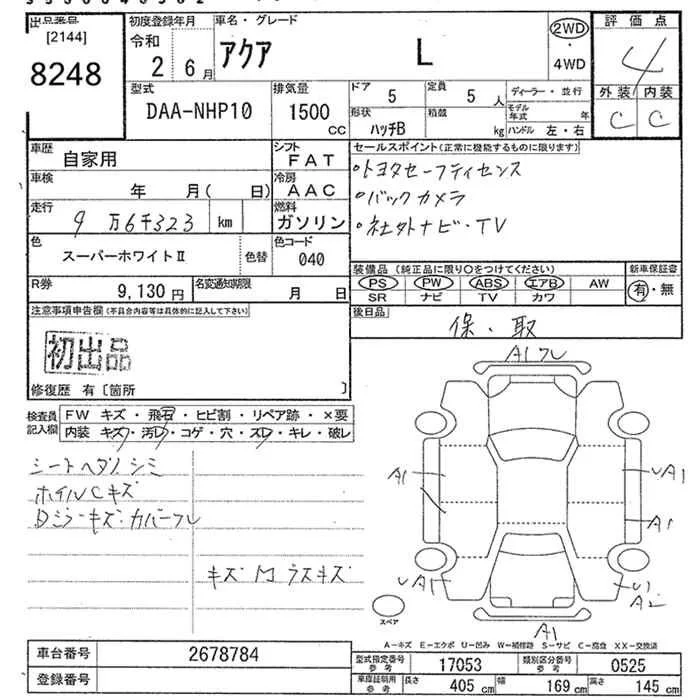 出品番号
[2144]
8248
初度登録年月
令和
2 6月
車名・グレード
アクア L
2WD
・
4WD
評価点
4
外装 内装
C C
型式
DAA-NHP10
排気量
1500
CC
ドア
5
定員
5人
形状
ハッチB
積載
kg
ディーラー・並行
モデル年式 年
ハンドル 左・右
車歴
自家用
シフト
FAT
車検
年 月( 日)
冷房
AAC
走行
9万6千323 km
燃料
ガソリン
色
スーパーホワイトⅡ
色替
色コード
040
R券
9,130円
名変通知期限
月 日
セールスポイント(正常に機能するものに限ります)
・トヨタセーフティセンス
・バックカメラ
・社外ナビ・TV
装備品(純正品に限り○をつけてください)
PS PW ABS エアB AW
SR ナビ TV カワ
新車保証書
有・無
後日品
保・取
注意事項申告欄(不具合内容等は具体的に記入して下さい)
初出品
修復歴 有〔箇所 〕
検査員記入欄
FW キズ・飛石・ヒビ割・リペア跡・×要
内装 キズ・汚レ・コゲ・穴・スレ・キレ・破レ
シートヘタリシミ
ホイルCキズ
Dミラーキズ・カバーフレ
A1フレ
A1
A1
A1
A2
A1
スペア
A-キズ E-エクボ U-凹み W-補修跡 S-サビ C-腐食 XX-交換済
車台番号
2678784
登録番号
型式指定番号
参考
17053
類別区分番号
参考
0525
車庫証明用
参考
長さ 405cm
幅 169cm
高さ 145cm